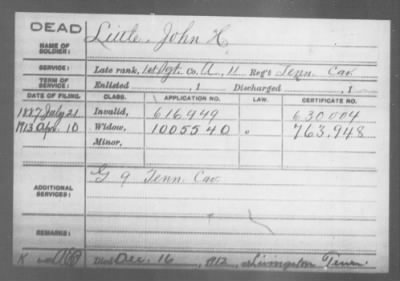 DEAD
NAME OF SOLDIER: Little, John H.
SERVICE: Late rank, 1st Sgt. Co. A, 11 Reg't Tenn. Cav.
TERM OF SERVICE: Enlisted , 1 Discharged , 1
DATE OF FILING. CLASS. APPLICATION NO. LAW. CERTIFICATE NO.
1887 July 21 Invalid, 616.949 630.004
1913 Apr. 10 Widow, 1005540 " 763.948
Minor,
ADDITIONAL SERVICES: G 9 Tenn. Cav.
REMARKS:
Died Dec. 16, 1912, Livingston Tenn.